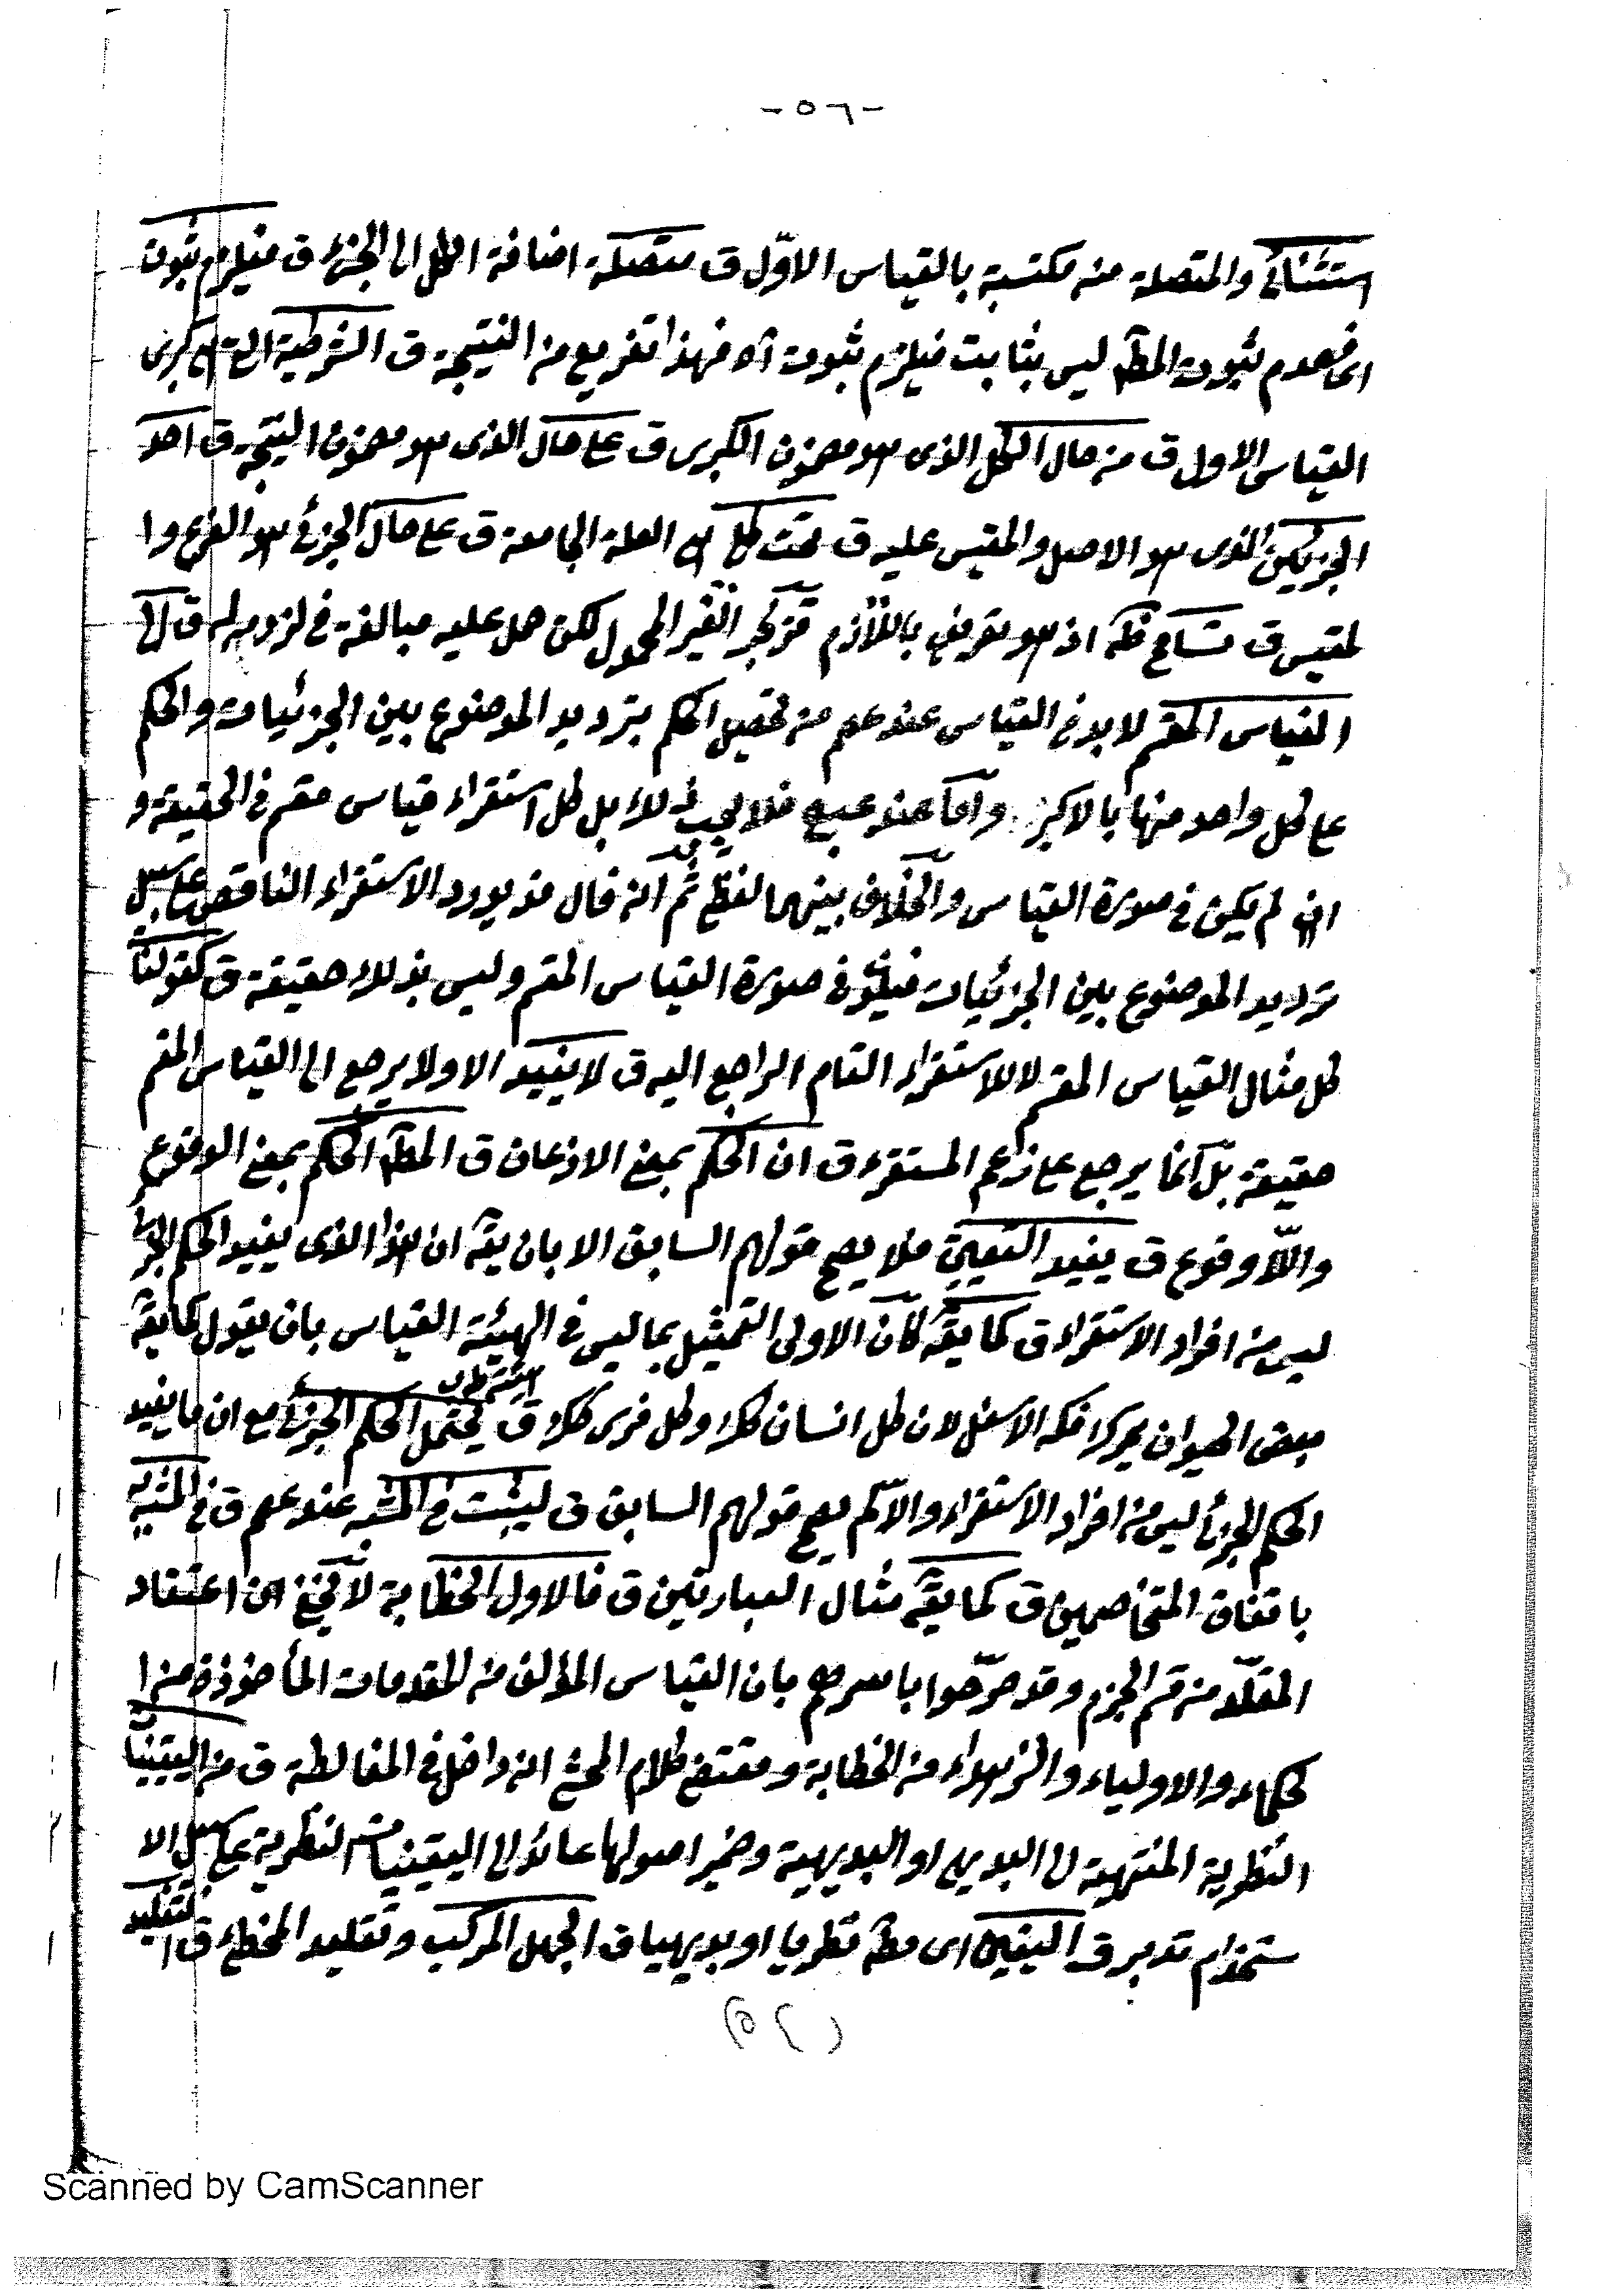 -٥٦-
استثنائى والمتصلة منه مكتسبة بالقياس الاوّل ق متصلة اضافة الكل الى الجزء ق فيلزم ثبوت
اى فعدم ثبوت المط ليس بثابت فيلزم ثبوت آه فهذا تفريع من النتيجة ق الشرطية الخ هى كبرى
القياس الاول ق من حال الكل الذى هو مضمون الكبرى ق على حال الذى هو مضمون النتيجة ق احد
الجزئيين الذى هو الاصل والمقيس عليه ق تحت كل هى العلة الجامعة ق على حال الجزئى هو الفرع وا
لمقيس ق تسامح اذ هو تعريف باللازم الغير المحمول لكن حمل عليه مبالغة فى لزومه له ق الى
القياس المقسم لا بد فى القياس عندهم من تحصيل الحكم بترديد الموضوع بين الجزئيات والحكم
على كل واحد منها بالاكبر. وأما عند فلا يجب ذلك بل كل استقراء قياس مقسم فى الحقيقة و
ان لم يكن فى صورة القياس والخلاف بينهما لفظى ثم انه قال قد يورد الاستقراء الناقص على سبيل
ترديد الموضوع بين الجزئيات فيكون فى صورة القياس المقسم وليس بذلك حقيقة ق كقولنا
كل مثال القياس المقسم لا للاستقراء التام الراجع اليه ق لا يفيد الا ولا يرجع الى القياس المقسم
حقيقة بل انما يرجع على زعم المستقرء ق ان الحكم بمعنى الاذعان ق المط الحكم بمعنى الوقوع
واللّا وقوع ق يفيد اليقين فلا يصح قولهم السابق الا بان يق ان هذا الذى يفيد الحكم الجزئى
ليس من افراد الاستقراء ق كما يق كان الاولى التمثيل بما ليس فى الهيئة القياس بان يقول كما يق
بعض الحيوان يحرك فكه الاسفل لان كل انسان كك وكل فرس كك ق يحتمل الحكم الجزئى مع ان ما يفيد
الحكم الجزئى ليس من افراد الاستقراء والا لم يصح قولهم السابق ق ليثبت فى المشبه عندهم ق فى المشبه به
باتفاق المتخاصمين ق كما يق مثال العبارتين ق فالاول الخطابة لا يخفى ان اعتقاد
المقلّد من قسم الجزم وقد صرّحوا باسرهم بان القياس المؤلف من المقدمات المأخوذة من ا
لحكماء والاولياء والزهاد من الخطابة ومقتضى كلام المحشى انه داخل فى المغالطة ق من اليقينيا
النظرية المنتهية الى البديهى او البديهية وضمير اصولها عائد الى اليقينيات النظرية على سبيل الا
ستخدام تدبر ق اليقين اى مط نظريا او بديهيا ق الجهل المركب وتقليد المخطئ ق التقليد
Scanned by CamScanner